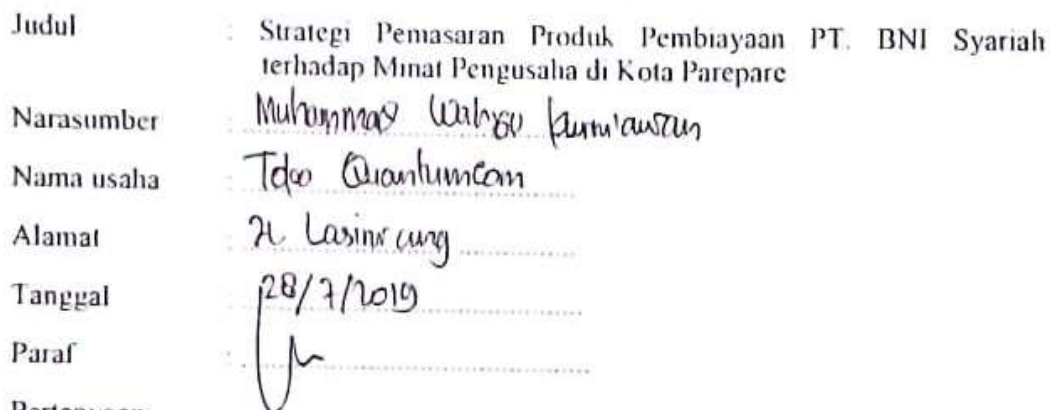 Judul : Strategi Pemasaran Produk Pembiayaan PT. BNI Syariah
terhadap Minat Pengusaha di Kota Parepare
Narasumber : Muhammad Wahyu Kurniawan
Nama usaha : Toko Quantumcom
Alamat : Jl. Lasinrang
Tanggal : 28/7/2019
Paraf :
Pertanyaan